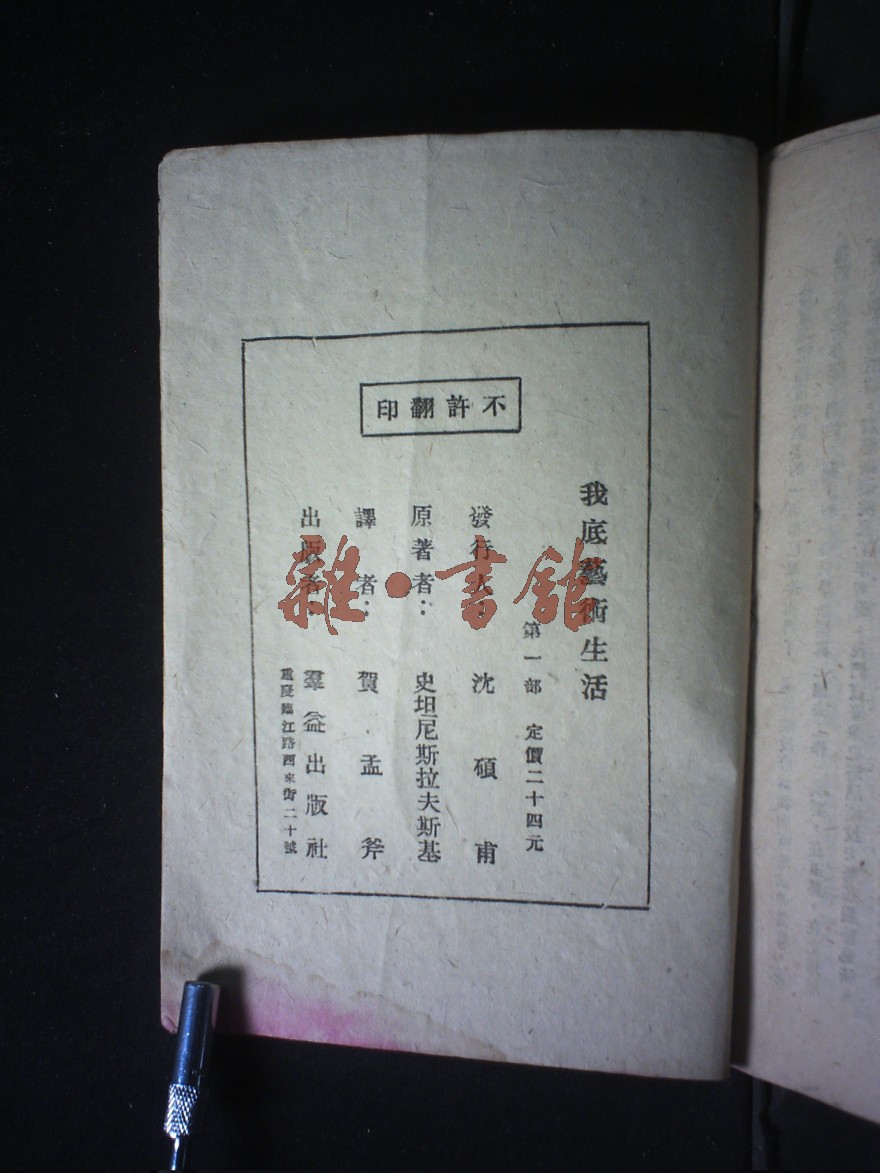 不許翻印
我底藝術生活
第一部　定價二十四元
發行人：沈碩甫
原著者：史坦尼斯拉夫斯基
譯者：賀孟斧
出版者：羣益出版社
重慶臨江路西來街二十號
雜·書館